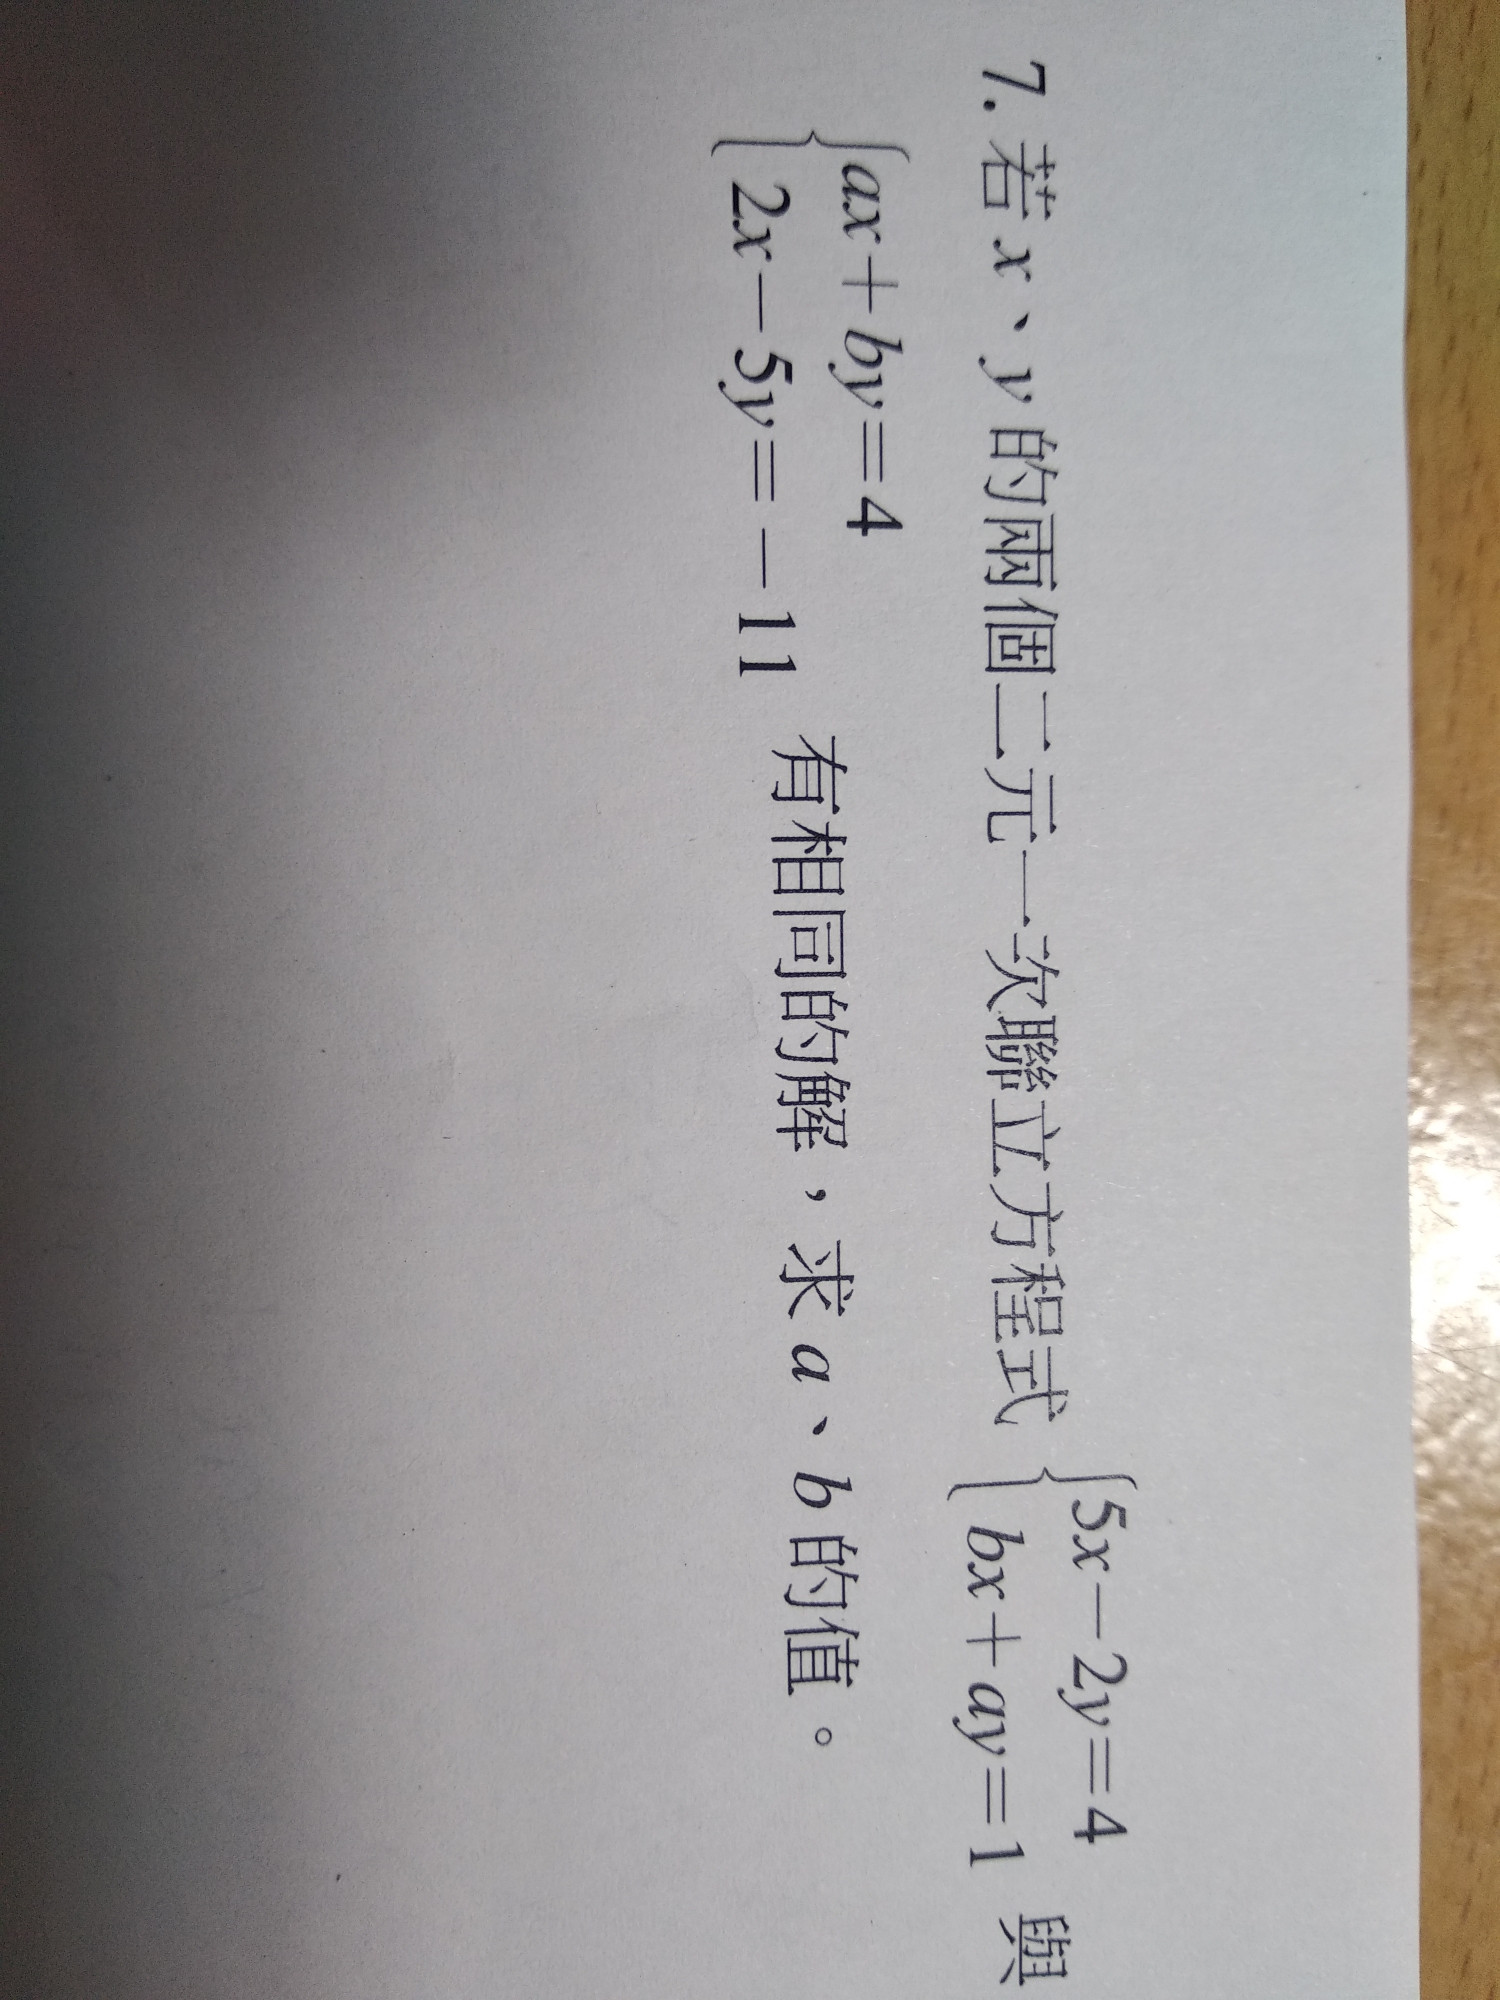 7. 若 x、y 的兩個二元一次聯立方程式 { 5x－2y＝4
bx＋ay＝1 與
{ ax＋by＝4
2x－5y＝－11 有相同的解，求 a、b 的值。